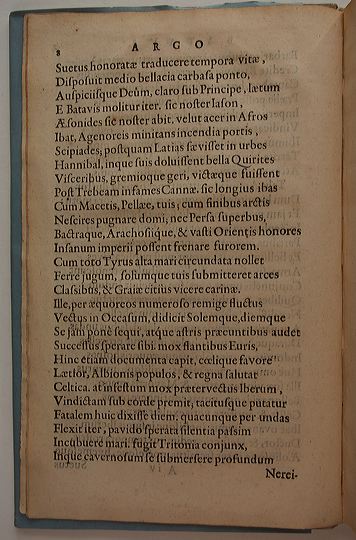 8 ARGO
Suetus honoratæ traducere tempora vitæ,
Disposuit medio bellacia carbasa ponto,
Auspiciisque Deûm, claro sub Principe, lætum
E Batavis molitur iter. sic noster Iason,
Æsonides sic noster abit. velut acer in Afros
Ibat, Agenoreis minitans incendia portis,
Scipiades; postquam Latias sævisset in urbes
Hannibal, inque suis doluissent bella Quirites
Visceribus, gremioque geri, victæque fuissent
Post Trebeam infames Cannæ. sic longius ibas
Cum Macetis, Pellæe, tuis; cum finibus arctis
Nescires pugnare domi; nec Persa superbus,
Bactraque, Arachosiique, & vasti Orientis honores
Insanum imperii possent frenare furorem.
Cum toto Tyrus alta mari circundata nollet
Ferre jugum, solumque tuis submitteret arces
Classibus, & Graiæ citius vicere carinæ.
Ille, per æquoreos numeroso remige fluctus
Vectus in Occasum, didicit Solemque, diemque
Se jam pone sequi, atque astris præeuntibus audet
Successus sperare sibi. mox flantibus Euris,
Hinc etiam documenta capit, cœlique favore
Lætior, Albionis populos, & regna salutat
Celtica. at infestum mox prætervectus Iberum,
Vindictam sub corde premit, tacitusque putatur
Fatalem huic dixisse diem. quacunque per undas
Flexit iter, pavido sperata silentia passim
Incubuere mari. fugit Tritonia conjunx,
Inque cavernosum se submersere profundum
Nerei-